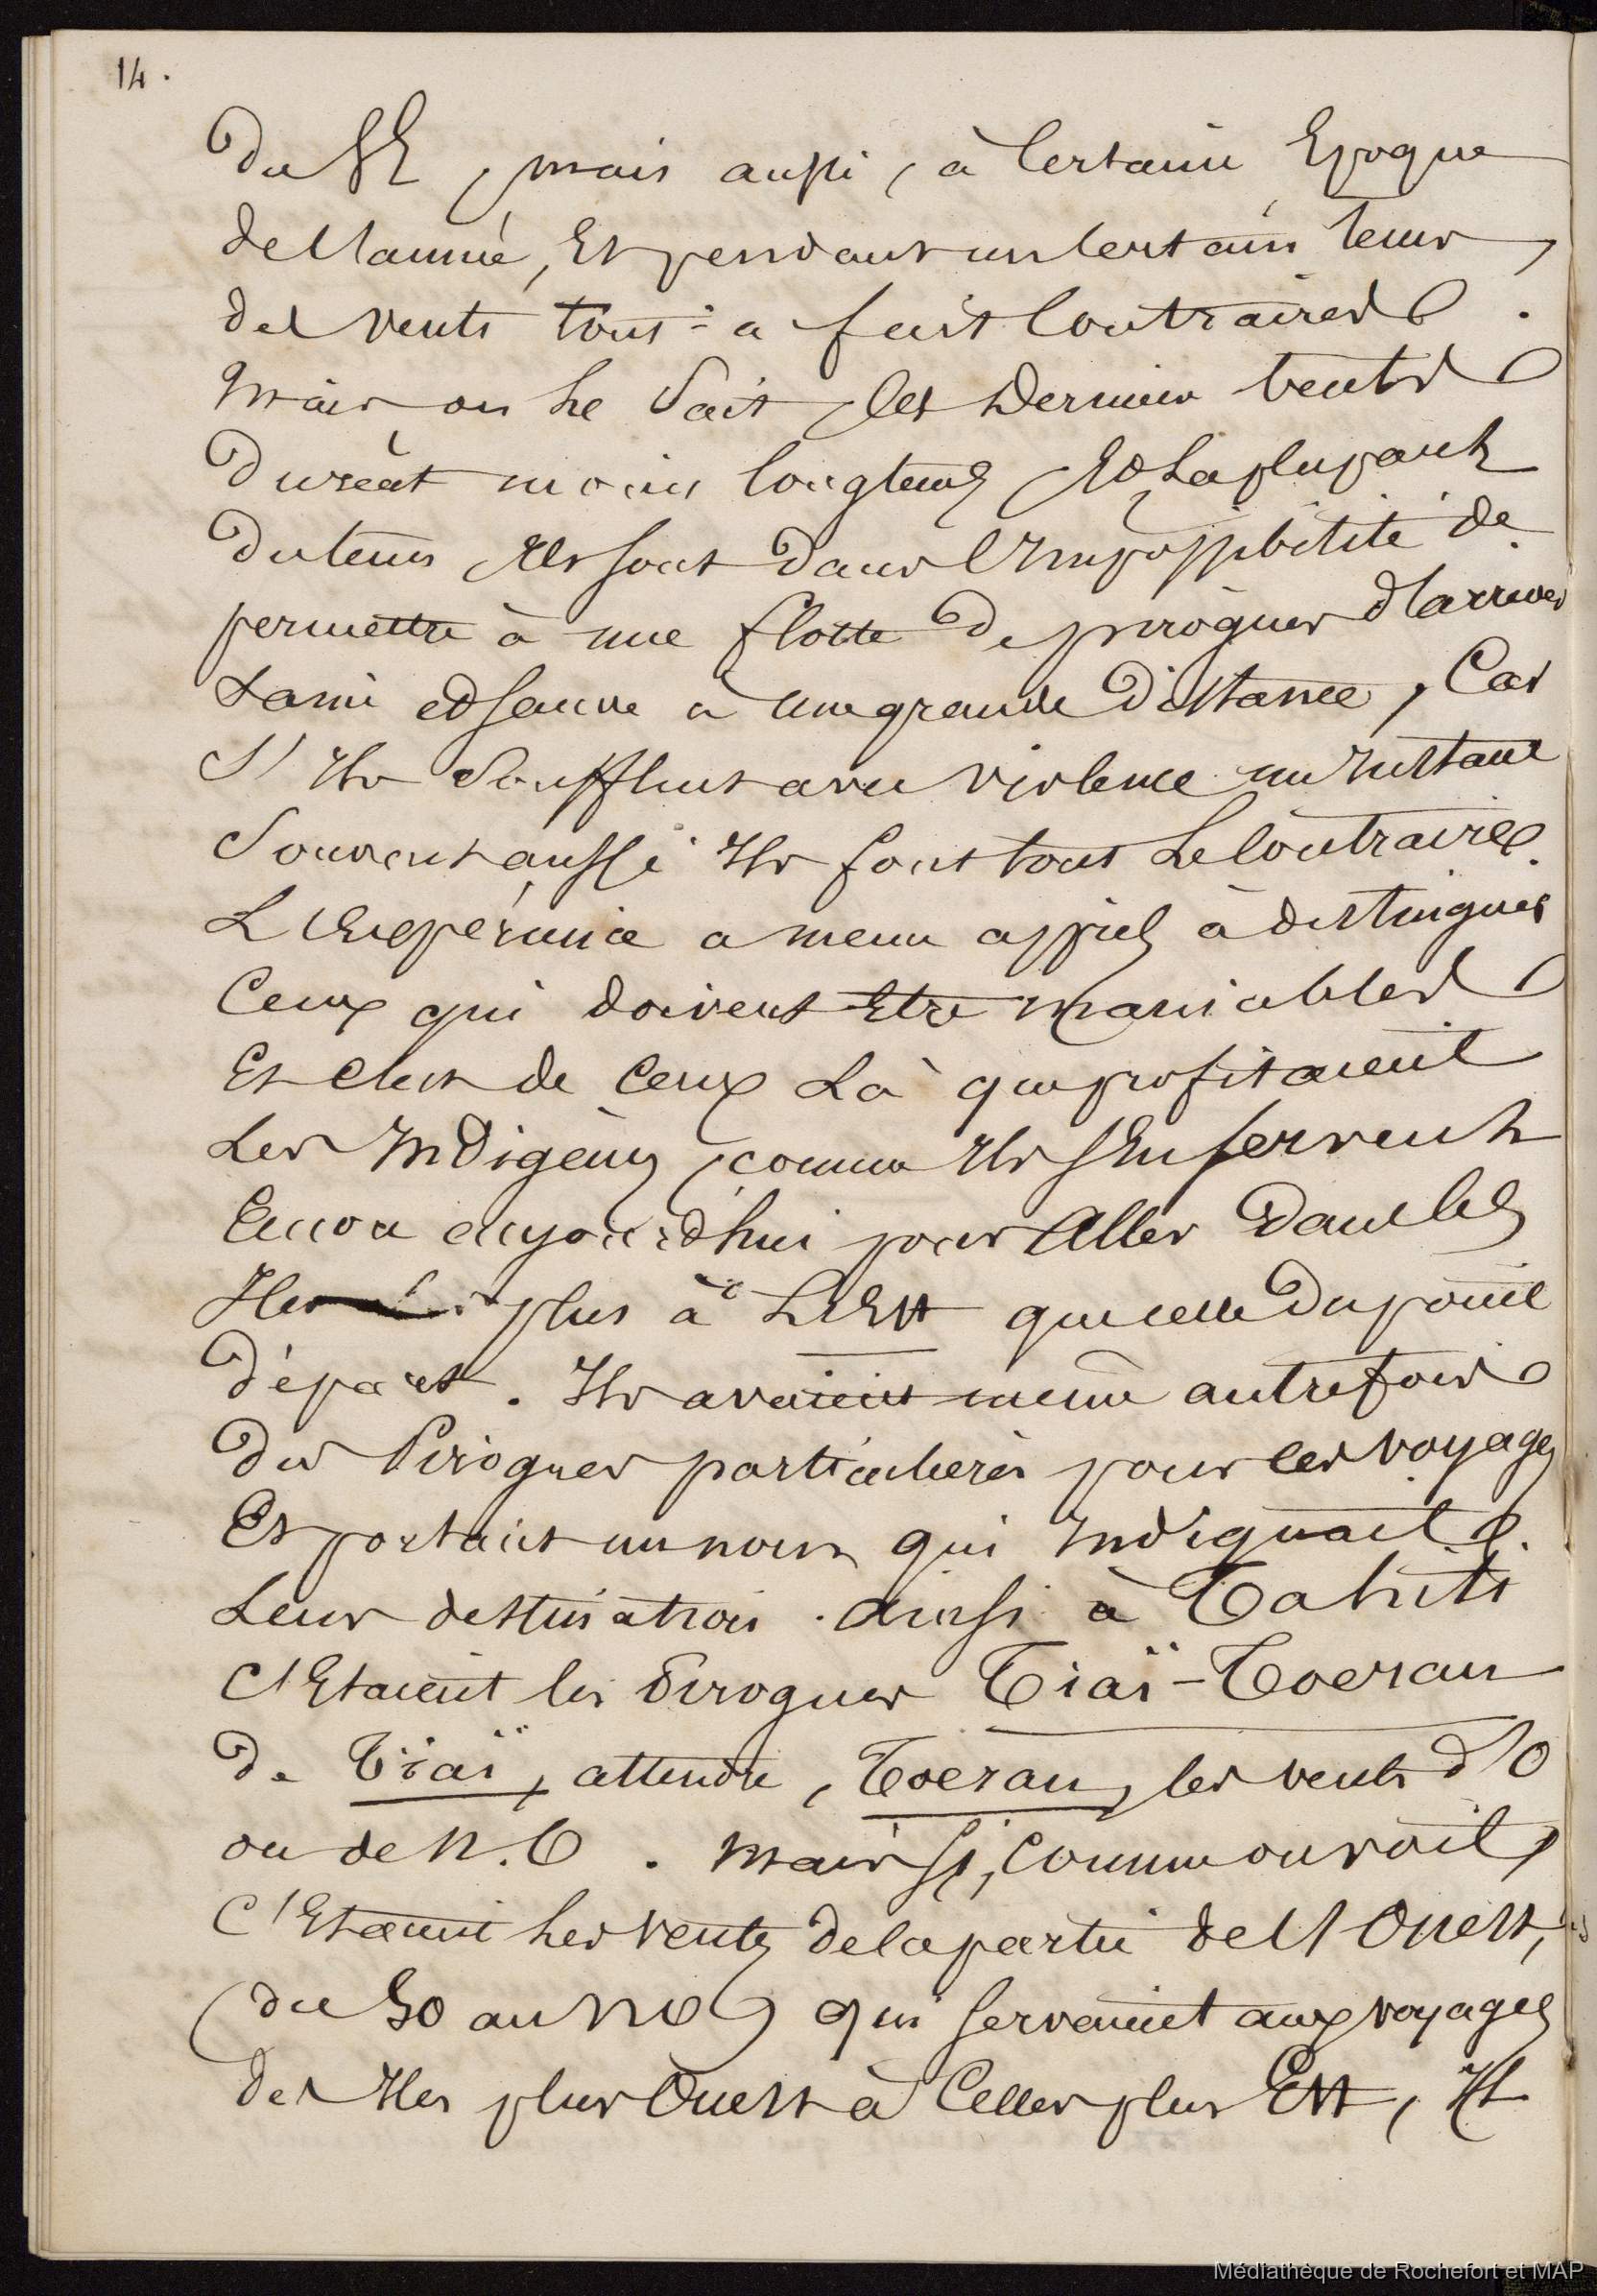 14.
Du SE, mais aussi, à Certaine Epoque
de l'année, Et pendant un certain tems,
des vents tout-à fait Contraires.
Mais on Le Sait, les Dernier vents
Durent moins longtems, Et La plupart
Du tems Ils sont dans l'Impossibilité de
permettre à une flotte De pirogues d'arriver
Saine et sauve à Une grande Distance, Car
S'Ils Soufflent avec violence un Instant
Souvent aussi Ils font tout Le Contraire.
L'Expérience a meme appris à distinguer
Ceux qui doivent Etre Maniables
Et c'est de Ceux Là que profitaient
Les Indigènes, comme Ils s'En servent
Encore aujourd'hui pour Aller Dans les
Iles plus à L'Est que celle Du point
Départ. Ils avaient même autrefois
Des Pirogues particulières pour ces voyages
Et portant un nom qui Indiquait
Leur destination. Ainsi à Tahiti
C'Etaient les Pirogues Tiaï-Toerau
De Tiaï, attendre, Toerau, les vents d'O
ou de N.O. Mais si, Comme on voit,
C'Etaient Les vents de la partie de l'Ouest,
(du SO au NO) qui servaient aux voyages
des Iles plus Ouest à Celles plus Est, Il
Médiathèque de Rochefort et MAP